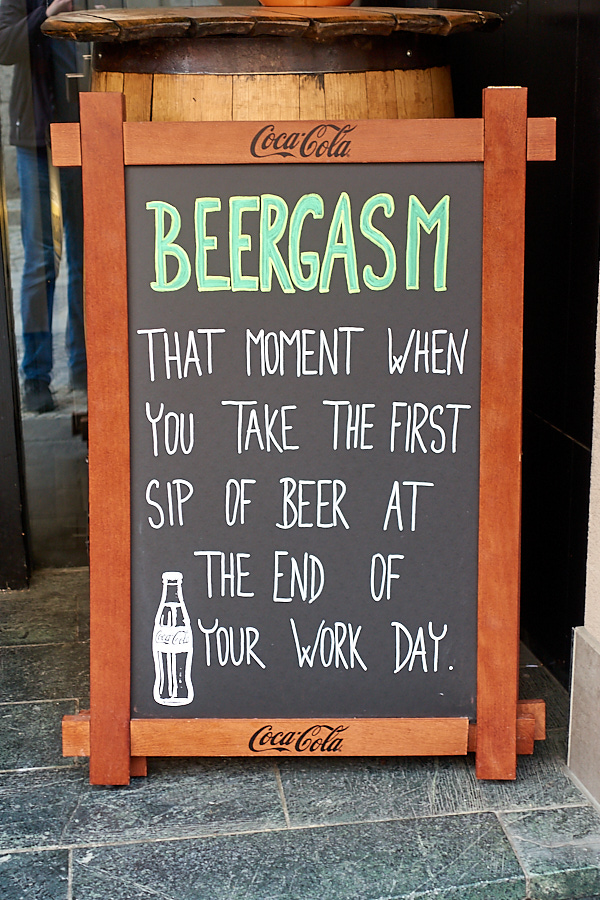 Coca-Cola
BEERGASM
THAT MOMENT WHEN
YOU TAKE THE FIRST
SIP OF BEER AT
THE END OF
YOUR WORK DAY.
Coca-Cola
Coca-Cola